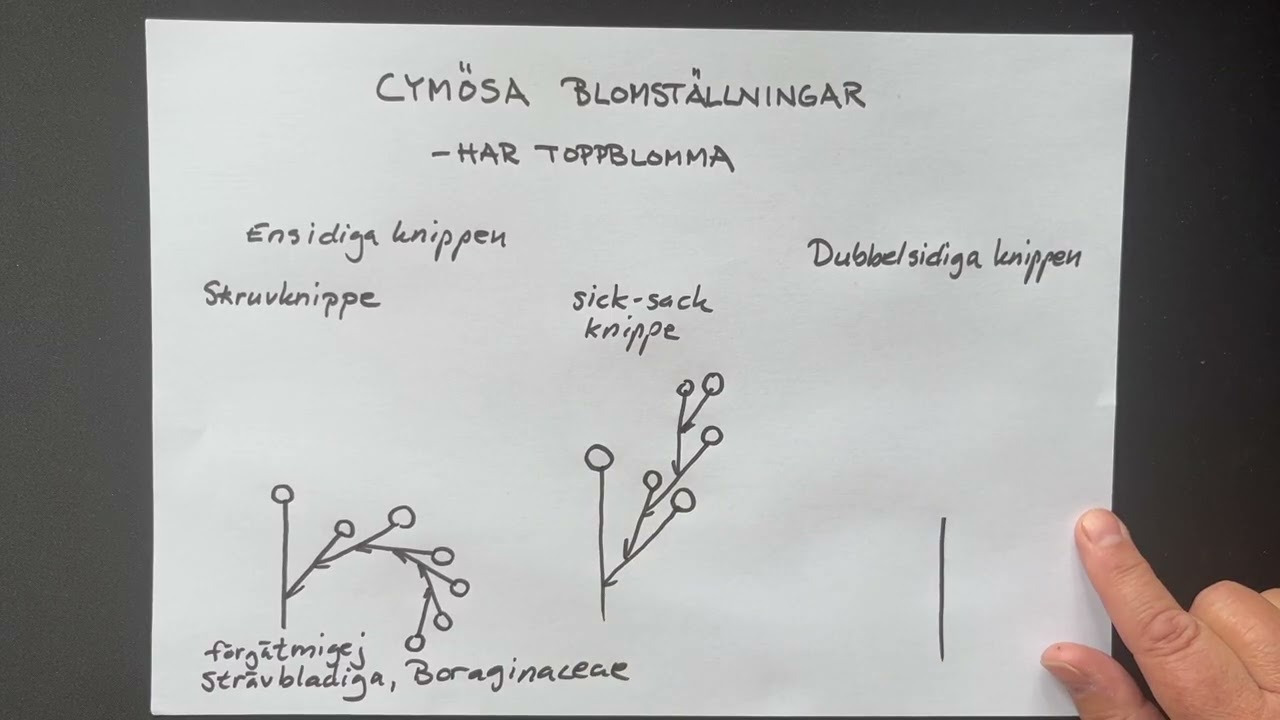 CYMÖSA BLOMSTÄLLNINGAR
-HAR TOPPBLOMMA
Ensidiga knippen
Dubbelsidiga knippen
Skruvknippe
sick-sack
knippe
förgätmigej
strävbladiga, Boraginaceae